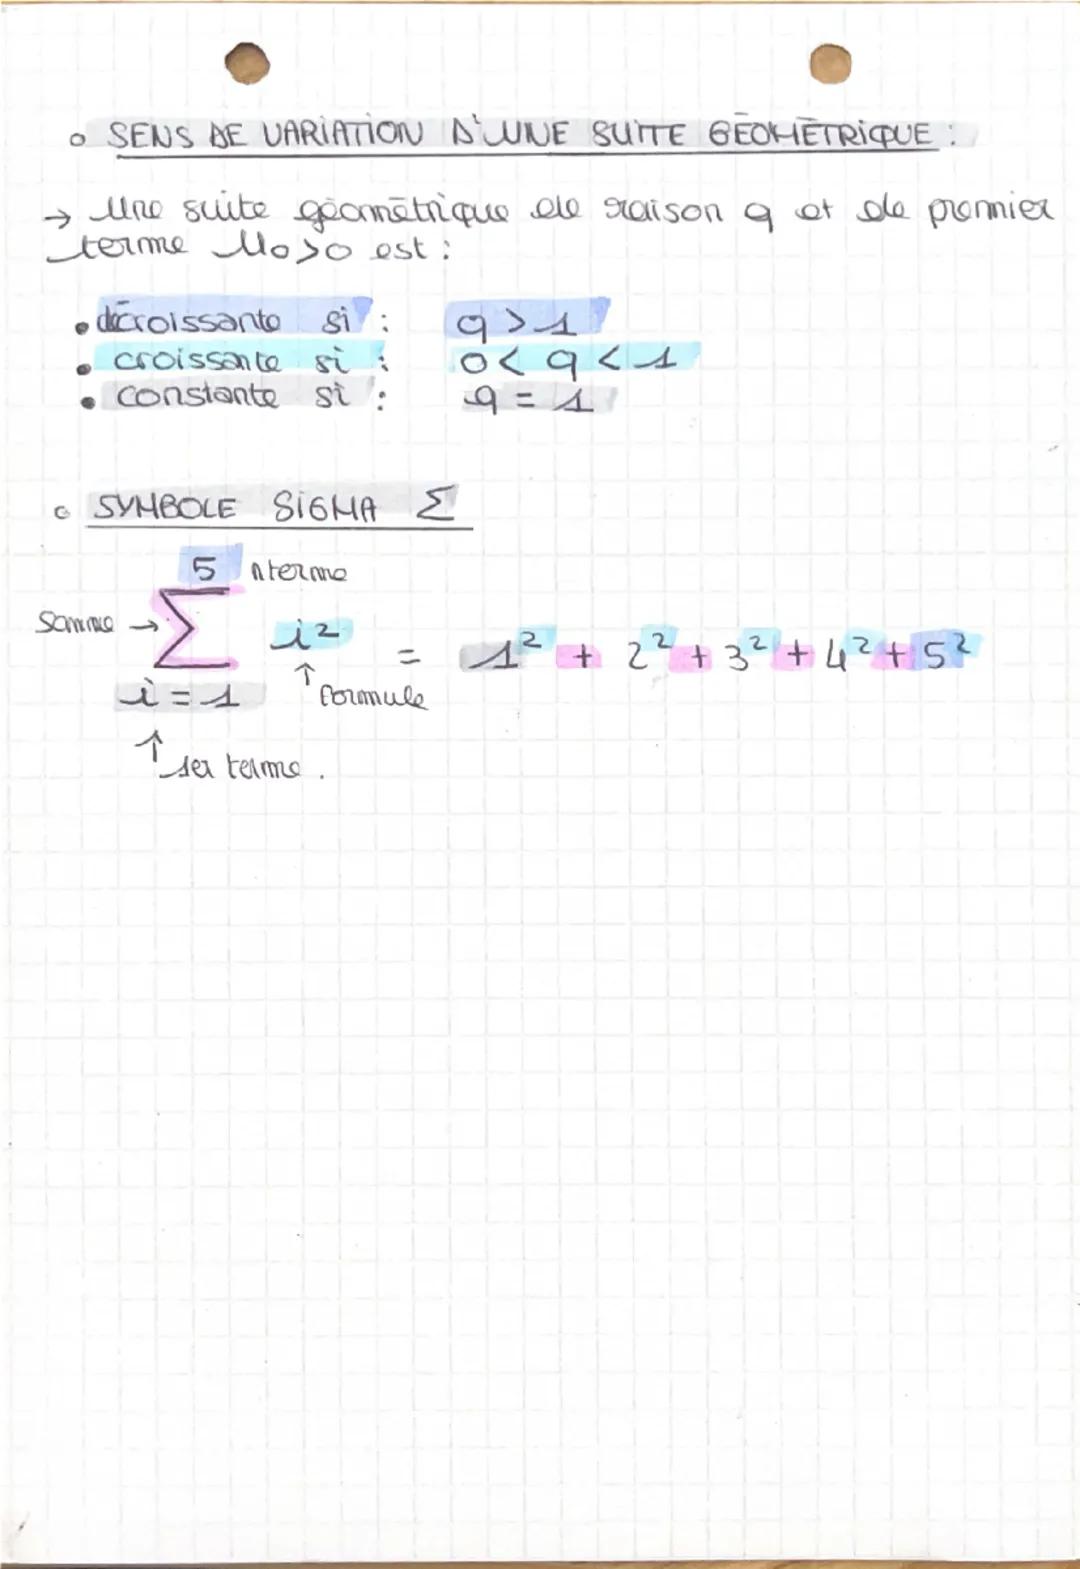 SENS DE VARIATION D'UNE SUITE GÉOMÉTRIQUE :
→ Une suite géométrique de raison q et de premier
terme U0>0 est :
• décroissante si : q > 1
• croissante si : 0 < q < 1
• constante si : q = 1
SYMBOLE SIGMA Σ
5 nterme
Somme → Σ i² = 1² + 2² + 3² + 4² + 5²
i = 1 ↑ formule
↑ 1er terme .